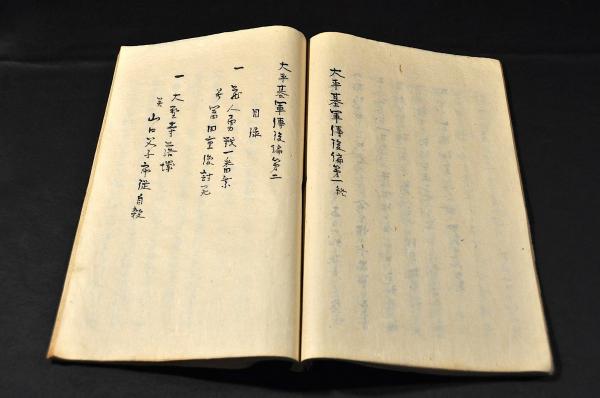 太平基軍傳後編第一終
太平基軍傳後編第二
目录
一 若人勇戦一番
冨田重俊討死
一 大聖寺落城
并 山口父子家従自殺